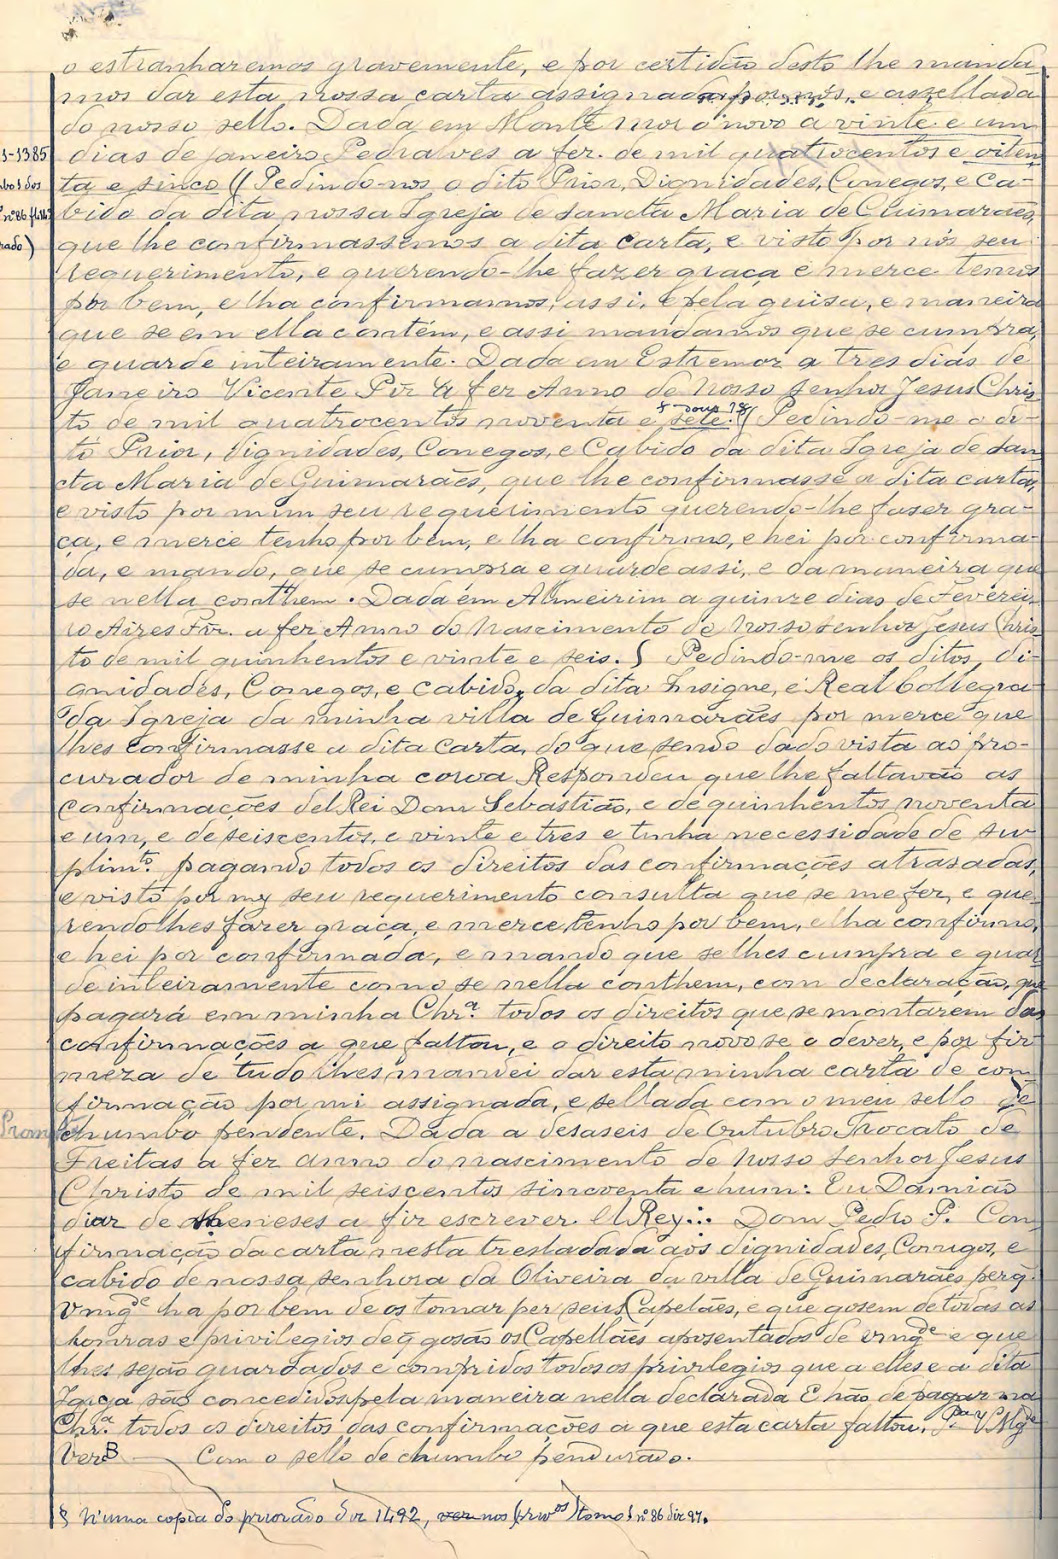 o estranharemos gravemente, e por certidão desto lhe manda
mos dar esta nossa carta assignada por nós, e assellada
do nosso sello. Dada em Monte mor o novo a vinte e um
1-1385 dias de janeiro Pedralves a fez. de mil quatrocentos e oiten
ta e sinco (( Pedindo-nos o dito Prior, Dignidades, Conegos, e Ca-
nº 86 bido da dita nossa Igreja de Sancta Maria de Guimarães,
que lhe confirmassemos a dita carta, e visto por nós seu
requerimento, e querendo-lhe fazer graça e merce temos
por bem, e lha confirmamos, assi, e pela guisa, e maneira
que se em ella contém, e assi mandamos que se cumpra,
e guarde inteiramente. Dada em Estremoz a tres dias de
Janeiro Vicente Piz a fez Anno de Nosso Senhor Jesus Chris
to de mil quatrocentos noventa e sete. (( Pedindo-me o di-
§ dous
to Prior, Dignidades, Conegos, e Cabido da dita Igreja de San
cta Maria de Guimarães, que lhe confirmasse a dita carta,
e visto por mim seu requerimento querendo-lhe faser gra-
ça, e merce tenho por bem, e lha confirmo, e hei por confirma-
da, e mando, que se cumpra e guarde assi, e da maneira que
se nella conthem. Dada em Almeirim a quinze dias de Feverei-
ro Aires Fiz. a fez Anno do Nascimento de Nosso Senhor Jesus Chris
to de mil quinhentos e vinte e seis. § Pedindo-me os ditos, di-
gnidades, Conegos, e Cabido, da dita Insigne, e Real Collegia
da Igreja da minha villa de Guimarães por merce que
lhes confirmasse a dita Carta, do que sendo dado vista ao pro-
curador de minha coroa Respondeu que lhe faltavão as
Confirmações del Rei Dom Sebastião, e de quinhentos noventa
e um, e de seiscentos, e vinte e tres e tinha necessidade de su-
plimto. pagando todos os direitos das confirmações atrasadas,
e visto por my seu requerimento consulta que se me fez, e que-
rendo lhes fazer graça, e merce, tenho por bem, e lha confirmo,
e hei por confirmada, e mando que se lhes cumpra e guar
de inteiramente como se nella conthem, com declaração, que
pagará em minha Chrª. todos os direitos que se montarem das
confirmações a que faltou, e o direito novo se o dever, e por fir
meza de tudo lhes mandei dar esta minha carta de con
firmação por mi assignada, e sellada com o meu sello de
chumbo pendente. Dada a desaseis de Outubro Trocato de
Freitas a fez anno do nascimento de Nosso Senhor Jesus
Christo de mil seiscentos sincoenta e hum: Eu Damião
diaz de Meneses a fiz escrever. El Rey.:. Dom Pedro P. Con
firmação da carta nesta trestadada aos dignidades, Conegos, e
cabido de nossa senhora da Oliveira da villa de Guimarães perq̃
Vmgde ha por bem de os tomar per seus Capelães, e que gosem de todas as
honras e privilegios de q̃ gosão os Capellães aposentados de vmgde e que
lhes sejão guardados e compridos todos os privilegios que a elles e a dita
Igreja são concedidos pela maneira nella declarada E hão de pagar na
Chrª. todos os direitos das confirmações a que esta carta faltou. Pª V Mgde
Ver B — Com o sello de chumbo pendurado.
§ N'uma copia do priorado diz 1492, ver nos (privos) tomo § nº 86 diz 97.